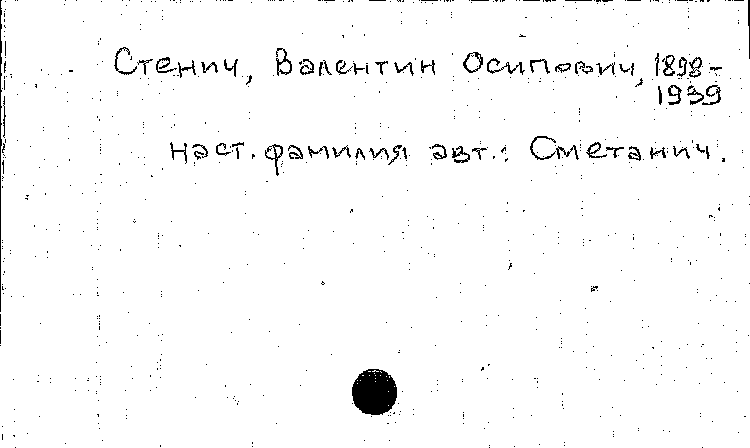 Стенич, Валентин Осипович, 1898-
1939
наст. фамилия авт.: Сметанич.